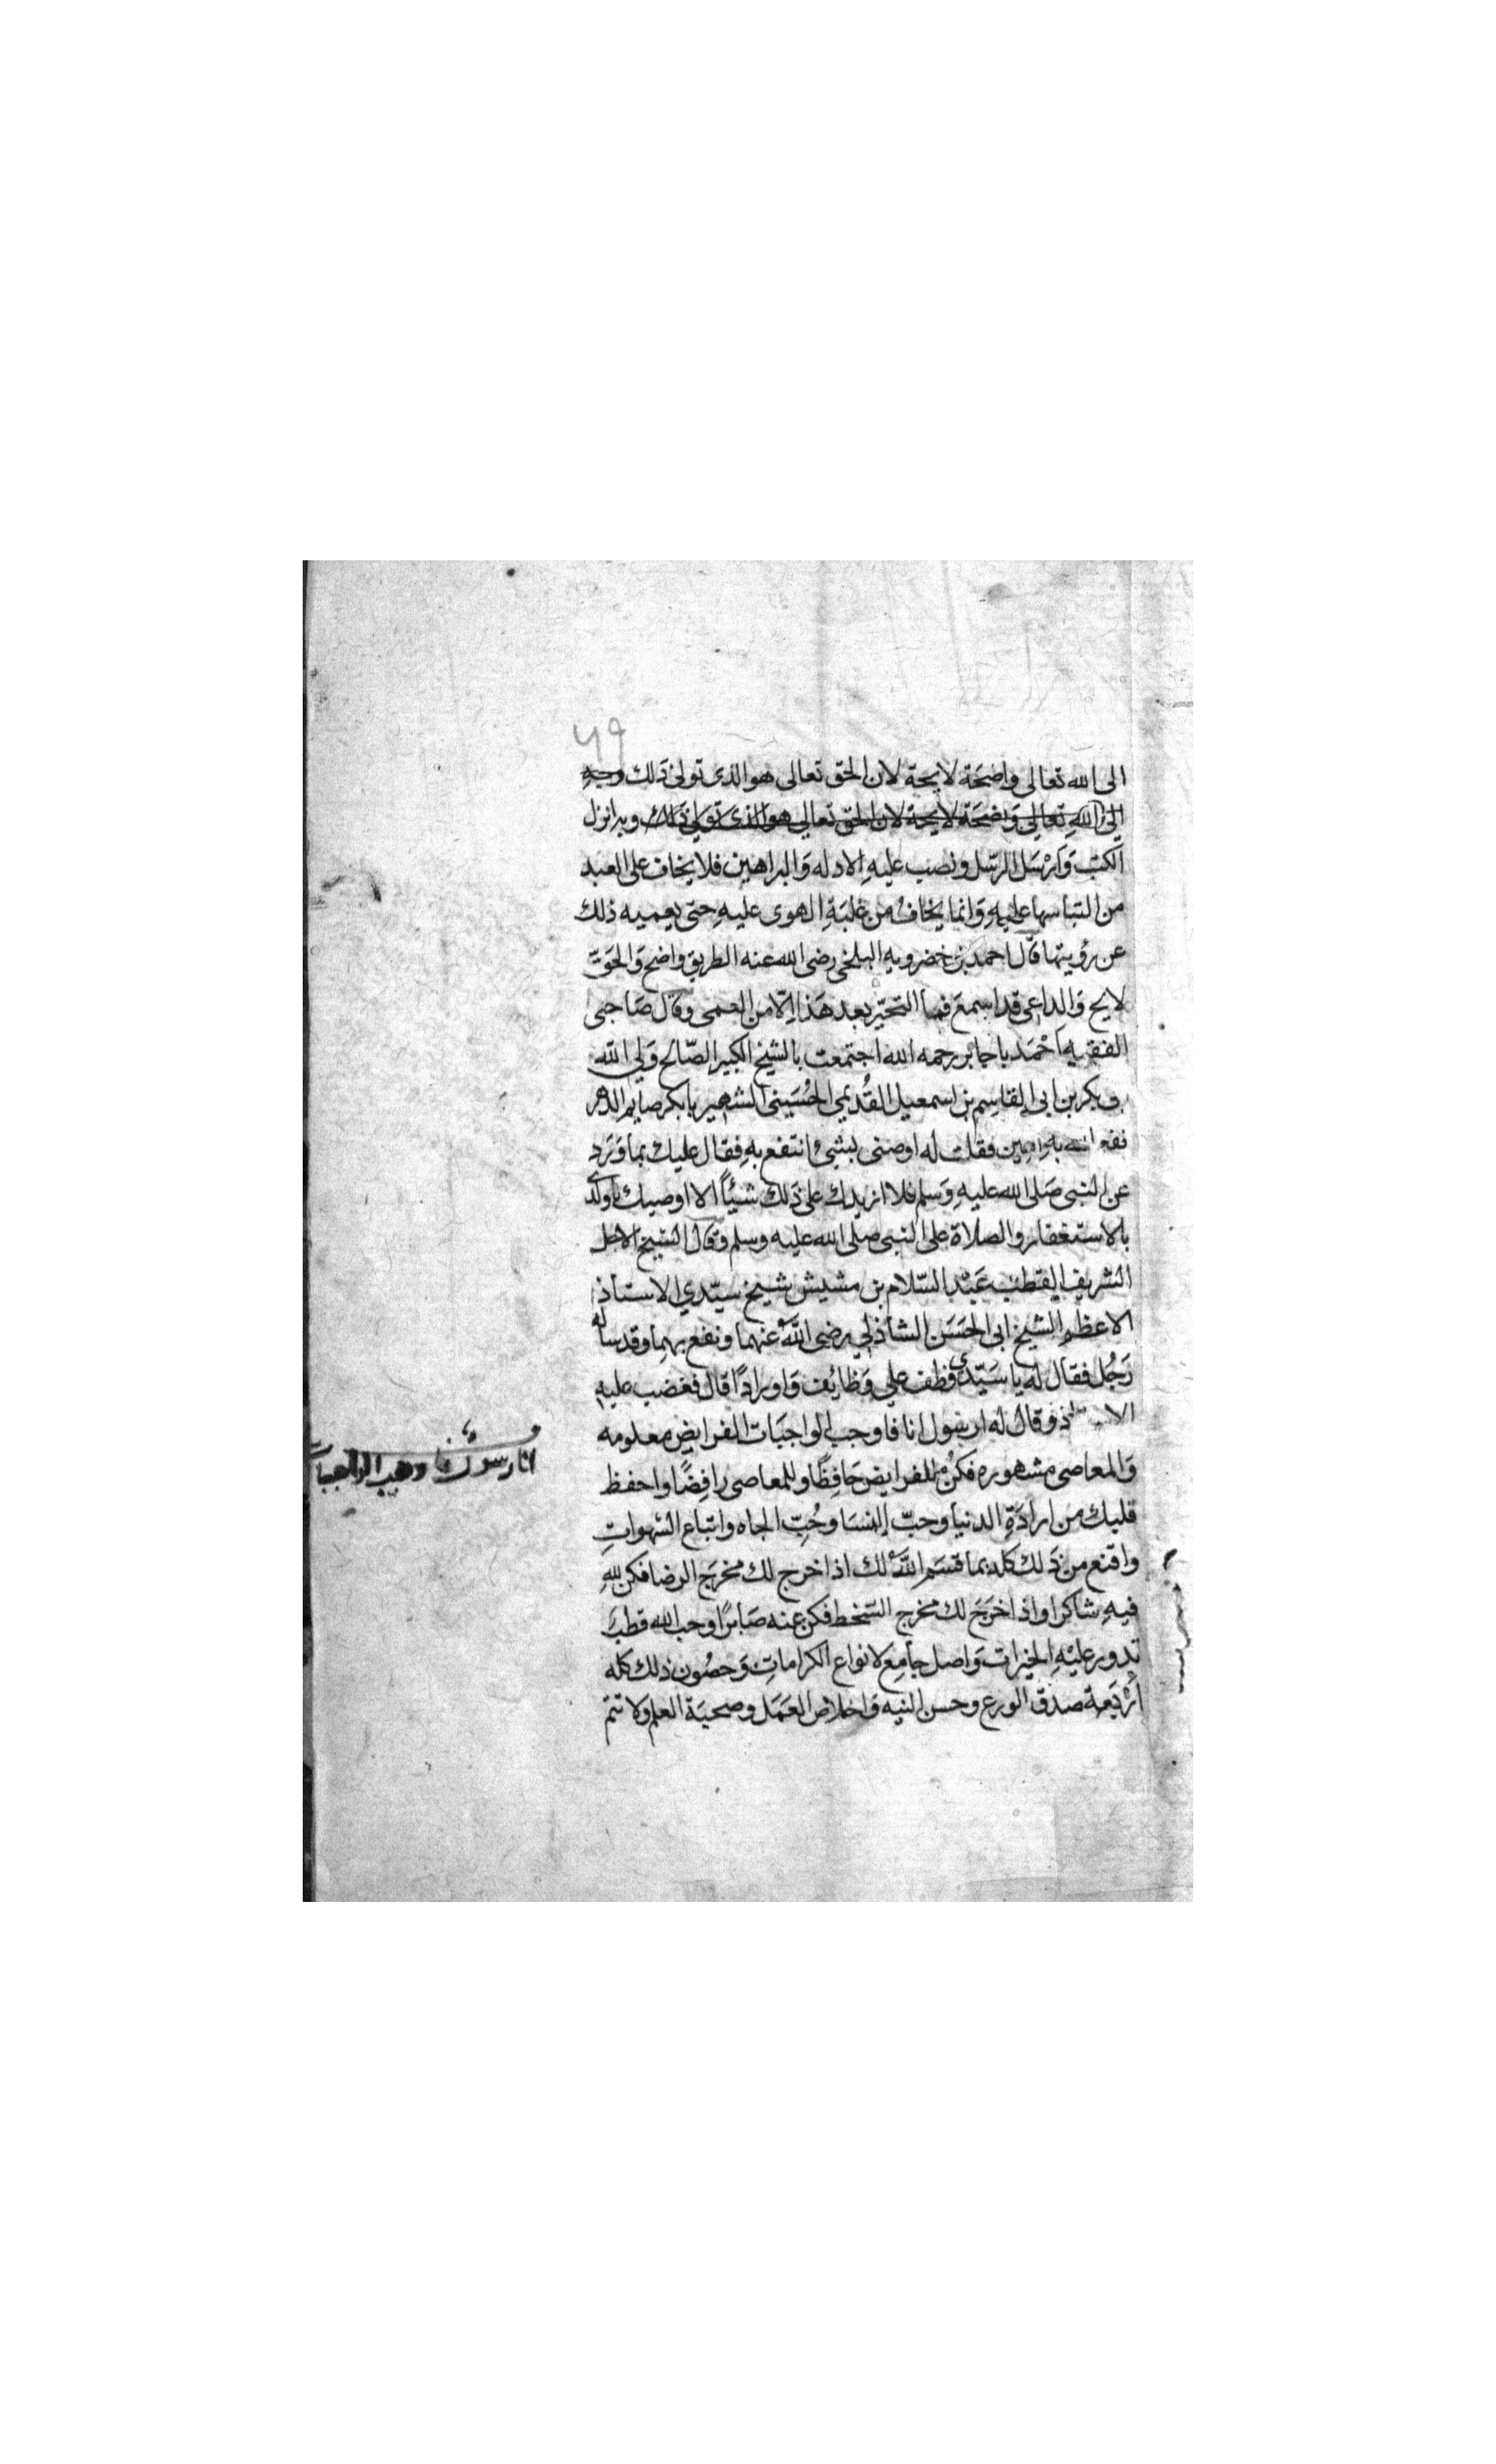 ٤٩
الى الله تعالى واضحَة لايحة لان الحق تعالى هو الذى تولى ذلك وجهه
الى اللهِ تعالى وَاضحَة لايحة لان الحق تعالى هو الذى تولى ذلك وبه انزل
الكتبَ وَارْسَل الرسَل ونصب عليهِ الادله وَالبراهين فلا يخاف على العبد
من التباسها عليهِ وَانما يخافُ من غلبَةِ الهوى عليهِ حتى يعميه ذلك
عن رؤيتها قال احمد بن خضرويه البلخى رضى الله عنه الطريق واضح وَالحَق
لايح وَالداعى قد اسمعَ فما التحيّر بعد هَذا الّا من العمى وقال صَاحبى
الفقيه اَحْمَد باجابر رحمه الله اجتمعت بالشيخ الكبير الصّالح وَلي الله
بو بكر بن ابى القاسِم بن اسمعيل القُديمي الحُسَينى الشهير بابكر صايم الدهر
نفع الله بهِ امين فقلت له اوصنى بشئ انتفع بهِ فقال عليك بما وَرَد
عن النبى صَلى الله عليهِ وَسلم فلا ازيدك على ذَلك شيئاً الا اوصيك ياولدى
بالاستغفار والصلاة على النبى صلى الله عليه وسلم وقال الشيخ الاجل
الشريف القطب عَبْد السّلام بن مشيش شيخ سيّدي الاستاذ
الاعظم الشيخ ابى الحسَن الشاذلي رضى اللَّهُ عنهما ونفع بهما وقد ساله
رَجُل فقال له يا سَيّدى وظف علي وَظايف وَاورادًا قال فغضب عليه
الاستاذ وقال له ارسول انا فاوجب الواجبَات الفرايض معلومه
وَالمعاصى مشهوره فكنْ للفرايض حَافِظًا وللمعاصى رافِضًا واحفظ
قلبك من ارادَةِ الدنيا وحبّ النسَا وحُبّ الجاه واتباع الشهواتِ
واقنع من ذَلك كله بما قسَم اللَّهُ لك اذا خرج لك مخرَج الرضا فكن للهِ
فيهِ شاكرا واذا خرَجَ لك مخرج السّخط فكن عنه صَابرًا وحب الله قطبَ
تدور عليْهِ الخيرات وَاصل جامِع لانواع الكراماتِ وَحصُون ذلك كله
ارْبَعة صدق الورع وحسن النيه وَاخلاص العَمَل وصحبَة العلم ولا تتم